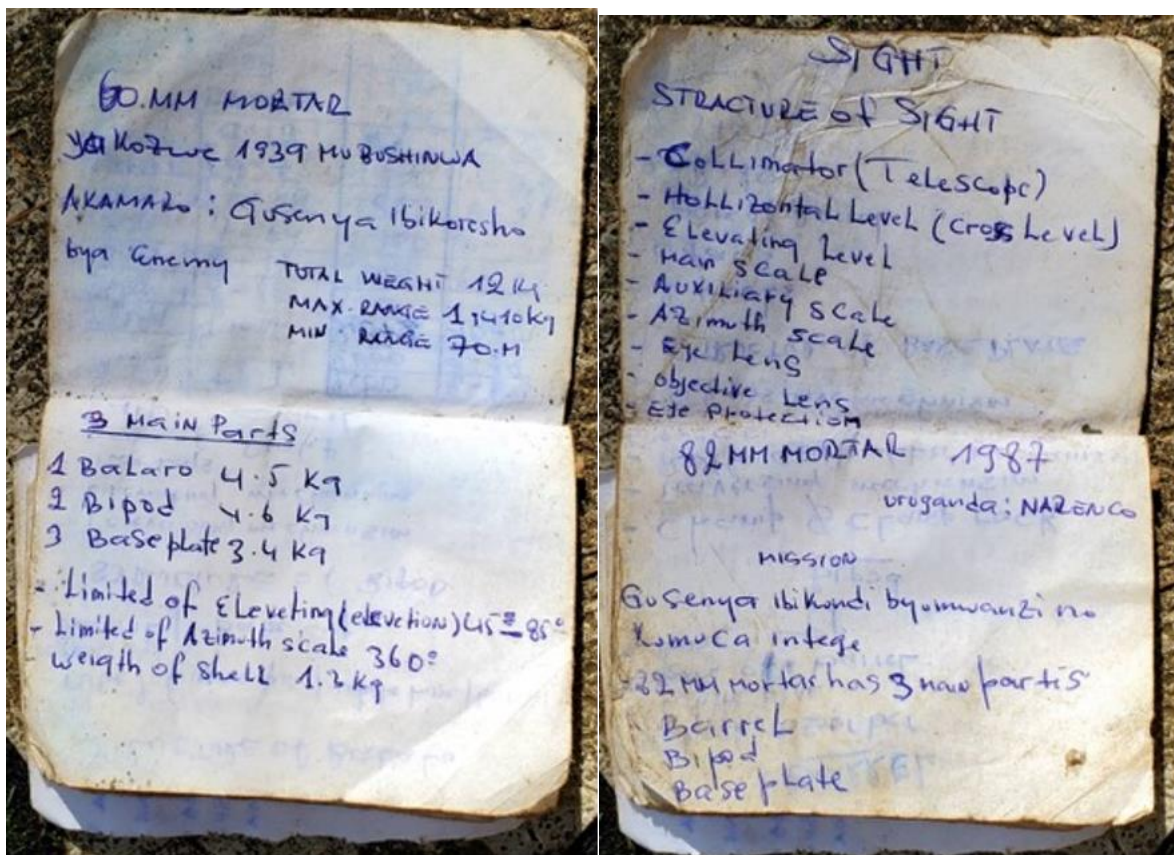 60.MM MORTAR
yakozwe 1939 MUBUSHINWA
AKAMARO : Gusenya Ibikoresho
bya Enemy
TOTAL WEGHT 12 Kg
MAX. RANGE 1,410Kg
MIN RANGE 70.M
3 Main Parts
1 Balaro 4.5 Kg
2 Bipod 4.6 Kg
3 Base plate 3.4 Kg
- Limited of Eleveting (elevetion) 45° - 85°
- Limited of Azimuth scale 360°
- weigth of shell 1.3 Kg
SIGHT
STRACTURE of SIGHT
- Collimator (Telescope)
- Hollizontal Level (Cross Level)
- Elevating Level
- Main scale
- Auxiliary scale
- Azimuth scale
- Eye Lens
- objective Lens
- Eye Protection
82 MM MORTAR 1987
uruganda : NARENCO
MISSION
Gusenya ibikundi byumwanzi no
kumuca intege
- 82 MM mortar has 3 main partis
Barrel
Bipod
Base plate